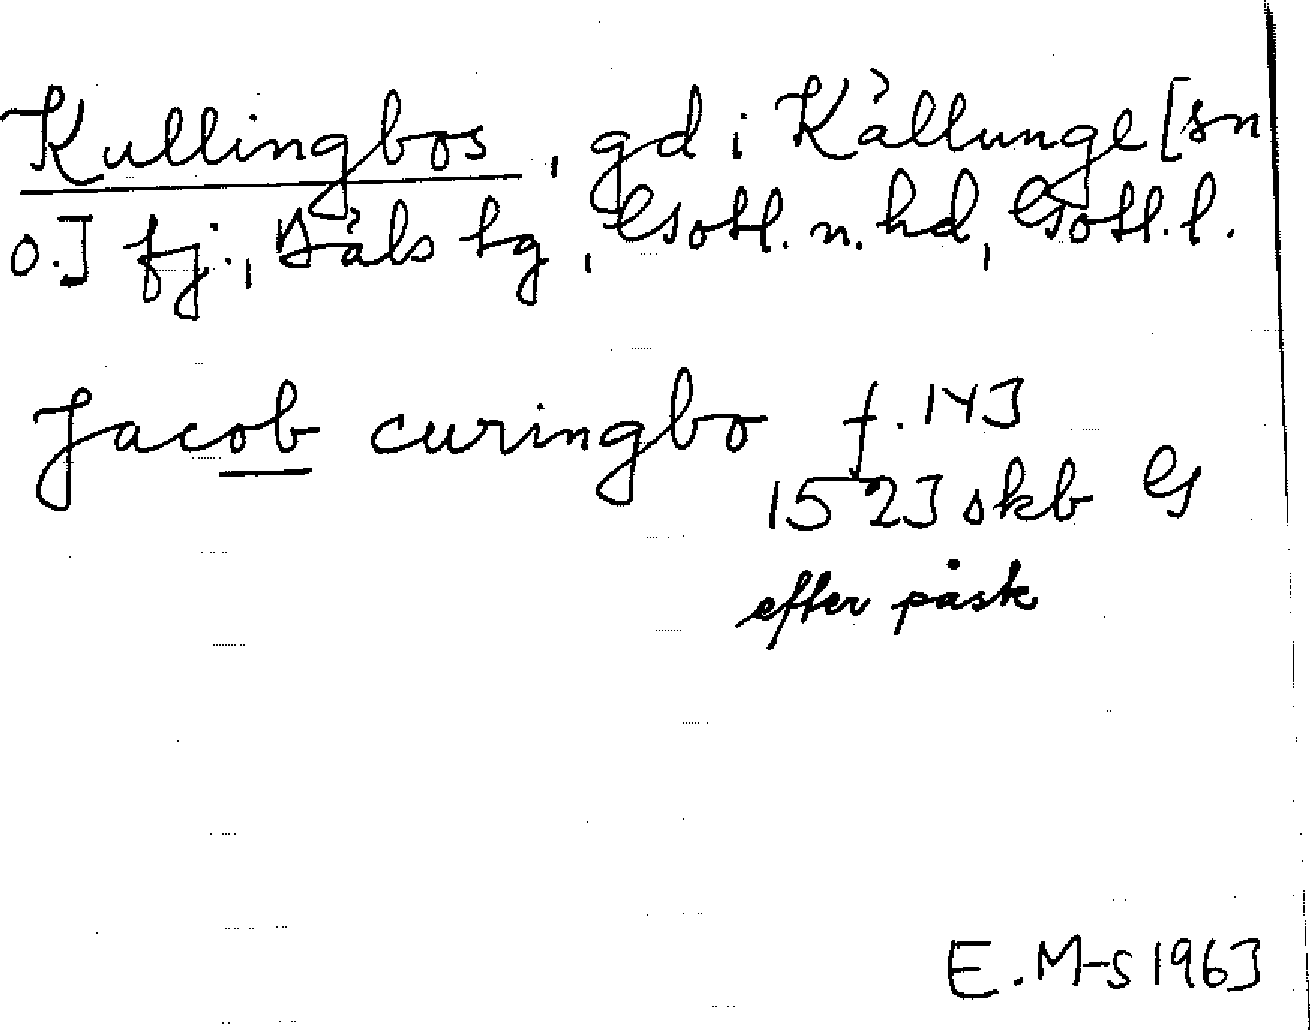 Kullingbos, gd i Källunge [sn
o.] fj., Däls tg, Gotl. n. hd, Gotl. l.
Jacob curingbo f. 143
1523 skb G
efter påsk
E. M-s 1963